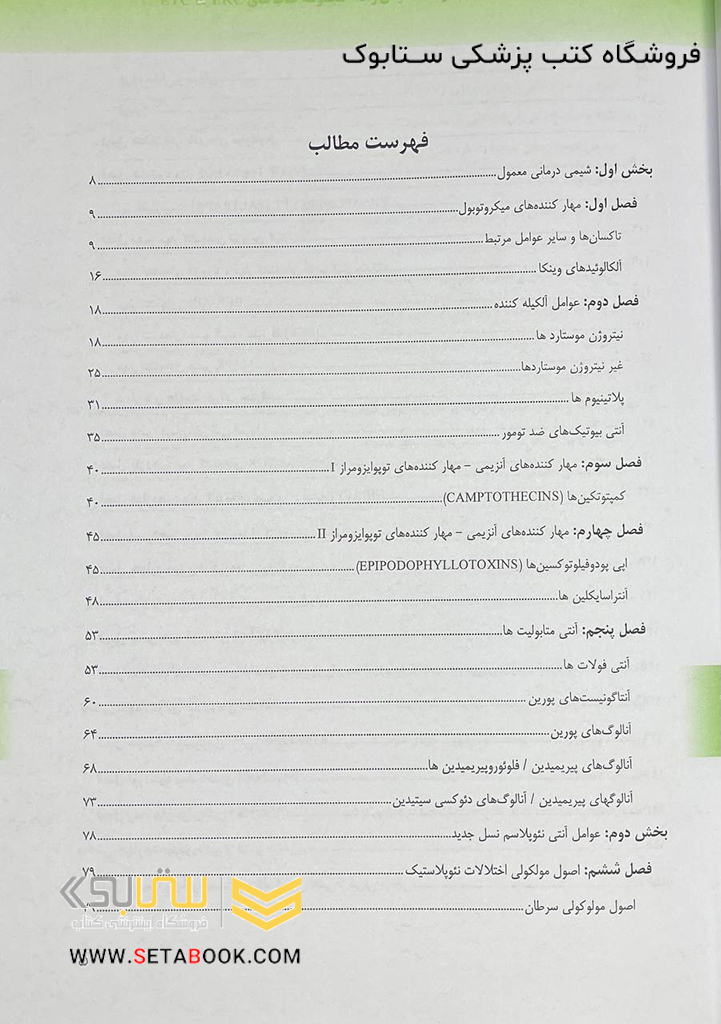 فروشگاه کتب پزشکی ستابوک
فهرست مطالب
بخش اول: شیمی درمانی معمول ۸
فصل اول: مهار کننده‌های میکروتوبول ۹
تاکسان‌ها و سایر عوامل مرتبط ۹
آلکالوئیدهای وینکا ۱۶
فصل دوم: عوامل آلکیله کننده ۱۸
نیتروژن موستارد ها ۱۸
غیر نیتروژن موستاردها ۲۵
پلاتینیوم ها ۳۱
آنتی بیوتیک‌های ضد تومور ۳۵
فصل سوم: مهار کننده‌های آنزیمی – مهار کننده‌های توپوایزومراز I ۴۰
کمپتوتکین‌ها (CAMPTOTHECINS) ۴۰
فصل چهارم: مهار کننده‌های آنزیمی – مهار کننده‌های توپوایزومراز II ۴۵
اپی پودوفیلوتوکسین‌ها (EPIPODOPHYLLOTOXINS) ۴۵
آنتراسایکلین ها ۴۸
فصل پنجم: آنتی متابولیت ها ۵۳
آنتی فولات ها ۵۳
آنتاگونیست‌های پورین ۶۰
آنالوگ‌های پورین ۶۴
آنالوگ‌های پیریمیدین / فلوئوروپیریمیدین ها ۶۸
آنالوگهای پیریمیدین / آنالوگ‌های دئوکسی سیتیدین ۷۳
بخش دوم: عوامل آنتی نئوپلاسم نسل جدید ۷۸
فصل ششم: اصول مولکولی اختلالات نئوپلاستیک ۷۹
اصول مولوکولی سرطان
ستابوک
فروشگاه اینترنتی کتاب
WWW.SETABOOK.COM